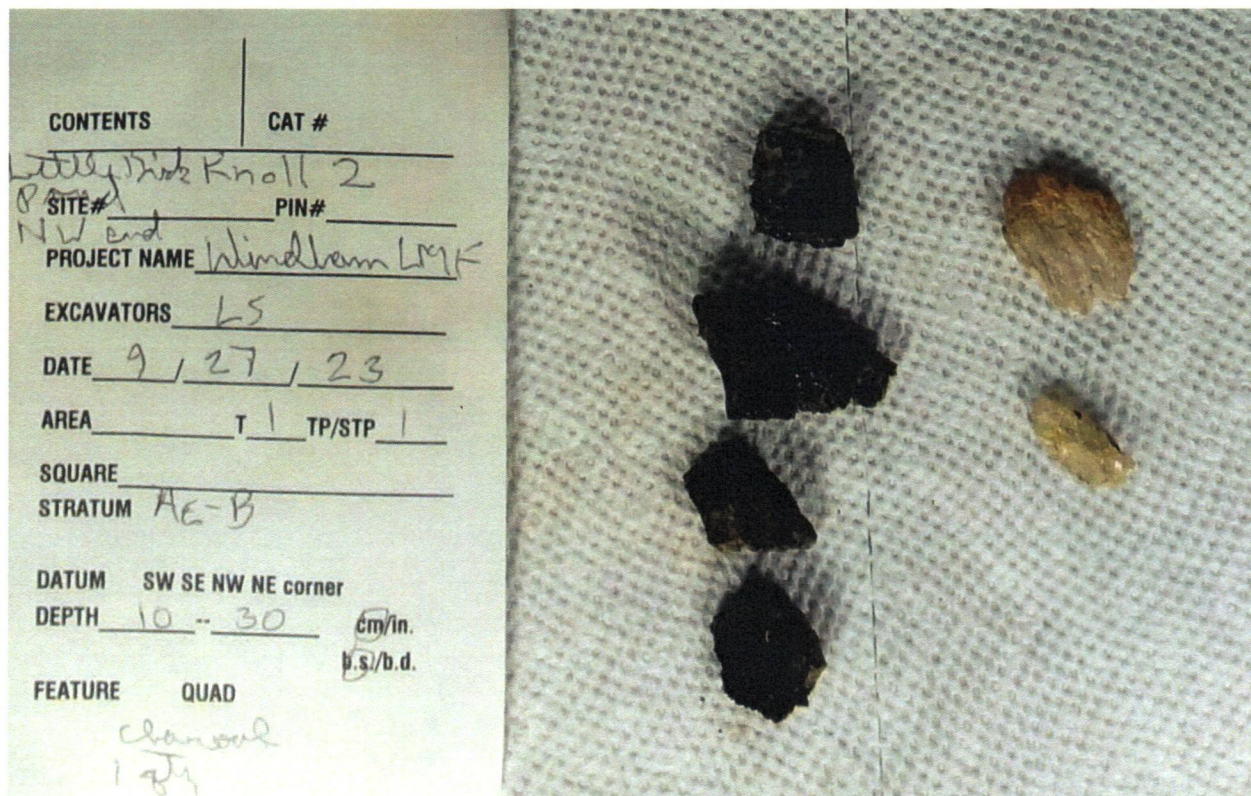 CONTENTS CAT #
Knoll 2
SITE# PIN#
NW end
PROJECT NAME Windham LMF
EXCAVATORS LS
DATE 9 / 27 / 23
AREA T 1 TP/STP 1
SQUARE
STRATUM AE-B
DATUM SW SE NW NE corner
DEPTH 10 -- 30 cm/in.
b.s./b.d.
FEATURE QUAD
charcoal
1